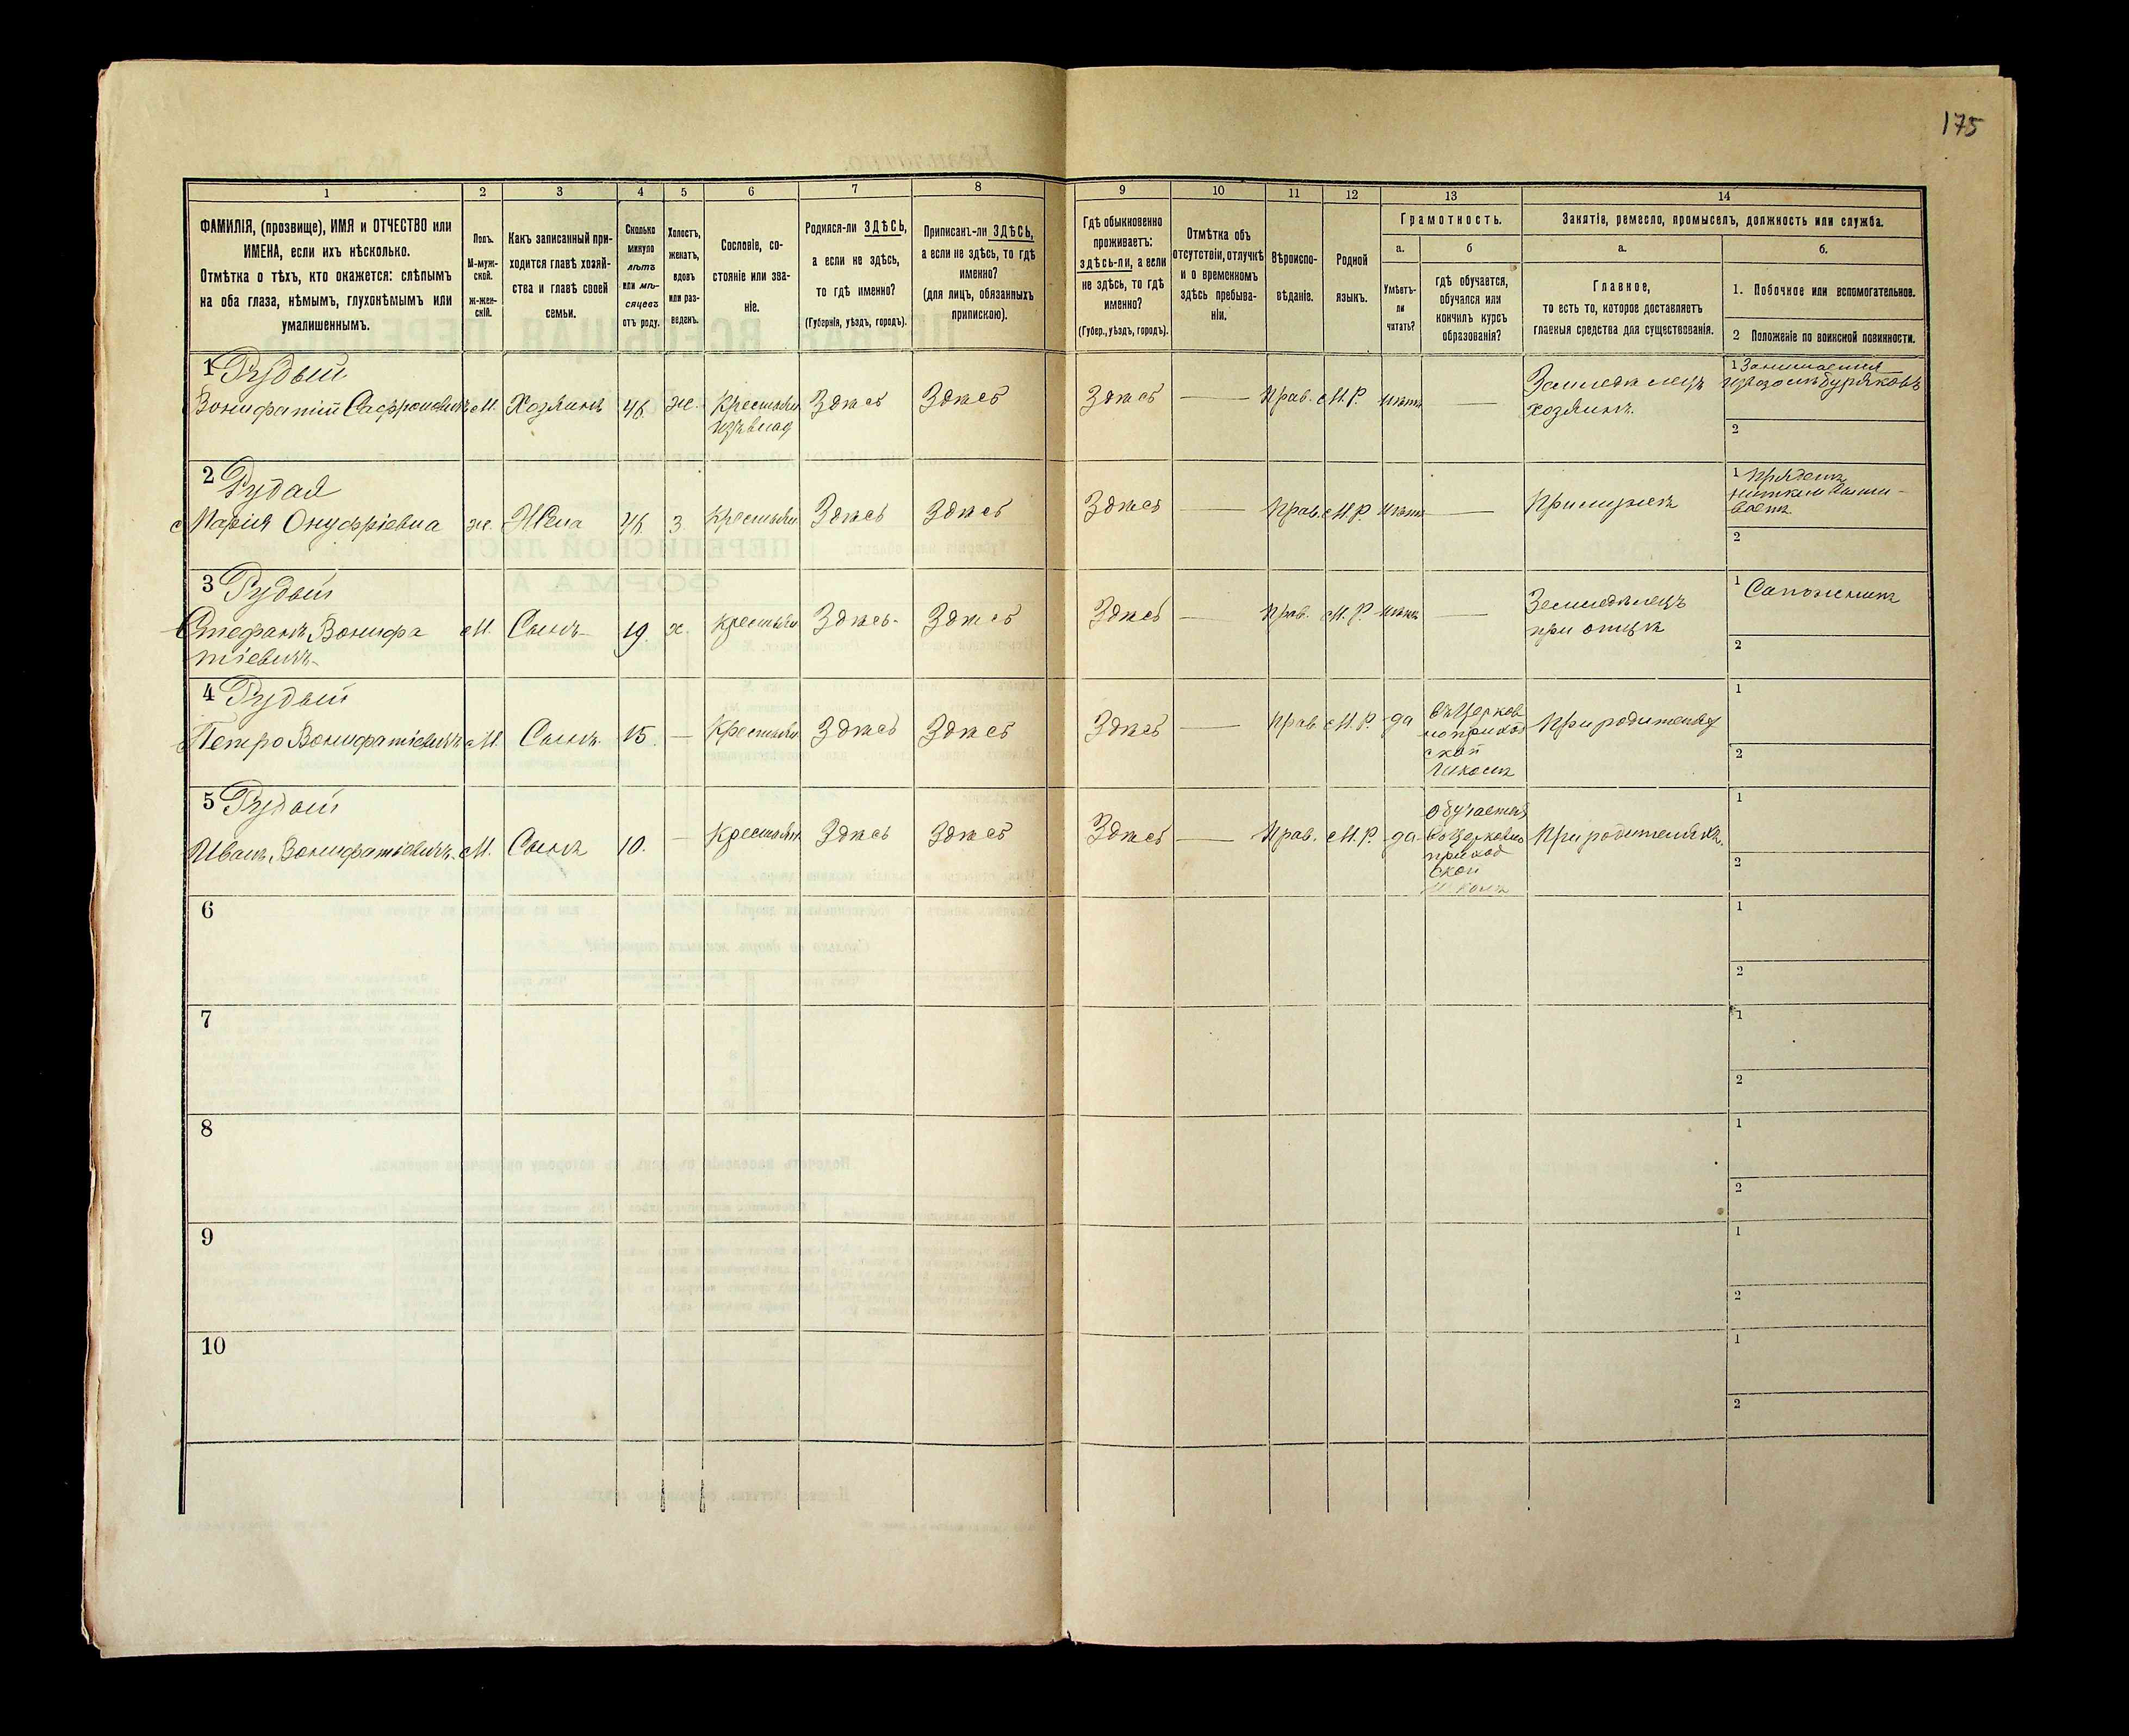 175
1
2
3
4
5
6
7
8
9
10
11
12
13
14
ФАМИЛІЯ, (прозвище), ИМЯ и ОТЧЕСТВО или
ИМЕНА, если ихъ нѣсколько.
Отмѣтка о тѣхъ, кто окажется: слѣпымъ
на оба глаза, нѣмымъ, глухонѣмымъ или
умалишеннымъ.
Полъ.
М-муж-
ской.
ж-жен-
скій.
Какъ записанный при-
ходится главѣ хозяй-
ства и главѣ своей
семьи.
Сколько
минуло
лѣтъ
или мѣ-
сяцевъ
отъ роду.
Холостъ,
женатъ,
вдовъ
или раз-
веденъ.
Сословіе, со-
стояніе или зва-
ніе.
Родился-ли ЗДѢСЬ,
а если не здѣсь,
то гдѣ именно?
(Губернія, уѣздъ, городъ).
Приписанъ-ли ЗДѢСЬ,
а если не здѣсь, то гдѣ
именно?
(для лицъ, обязанныхъ
припискою).
Гдѣ обыкновенно
проживаетъ:
здѣсь-ли, а если
не здѣсь, то гдѣ
именно?
(Губер., уѣздъ, городъ).
Отмѣтка объ
отсутствіи, отлучкѣ
и о временномъ
здѣсь пребыва-
ніи.
Вѣроиспо-
вѣданіе.
Родной
языкъ.
Грамотность.
а.
Умѣетъ-
ли
читать?
б
гдѣ обучается,
обучался или
кончилъ курсъ
образованія?
Занятіе, ремесло, промыселъ, должность или служба.
а.
Главное,
то есть то, которое доставляетъ
главныя средства для существованія.
б.
1. Побочное или вспомогательное.
2 Положеніе по воинской повинности.
1 Рудый
Вонифатій Сафроновичъ
М.
Хозяинъ
46
же.
Крестьян
изъ влад
Здѣсь
Здѣсь
Здѣсь
—
Прав.
М.Р.
нѣтъ
—
Земледѣлецъ
хозяинъ.
1 Занимается
извозомъ буряковъ
2
2 Рудая
Марія Онуфріевна
же.
Жена
46
з
Крестьян
Здѣсь
Здѣсь
Здѣсь
—
Прав.
М.Р.
нѣтъ
—
При мужѣ
1 Прядетъ
нитки и выши-
ваетъ
2
3 Рудый
Стефанъ Вонифа
тіевичъ
М.
Сынъ
19
х.
Крестьян
Здѣсь
Здѣсь
Здѣсь
—
Прав.
М.Р.
нѣтъ
—
Земледѣлецъ
при отцѣ
1 Сапожникъ
2
4 Рудый
Петро Вонифатіевичъ
М.
Сынъ
15
—
Крестьян
Здѣсь
Здѣсь
Здѣсь
—
Прав
М.Р.
да
въ Церков
но приход
ской
школѣ
При родителях
1
2
5 Рудый
Иванъ Вонифатіевичъ.
М.
Сынъ
10.
—
Крестьян
Здѣсь
Здѣсь
Здѣсь
—
Прав.
М.Р.
да
Обучается
въ Церковно
приход
ской
школѣ
При родителяхъ.
1
2
6
1
2
7
1
2
8
1
2
9
1
2
10
1
2